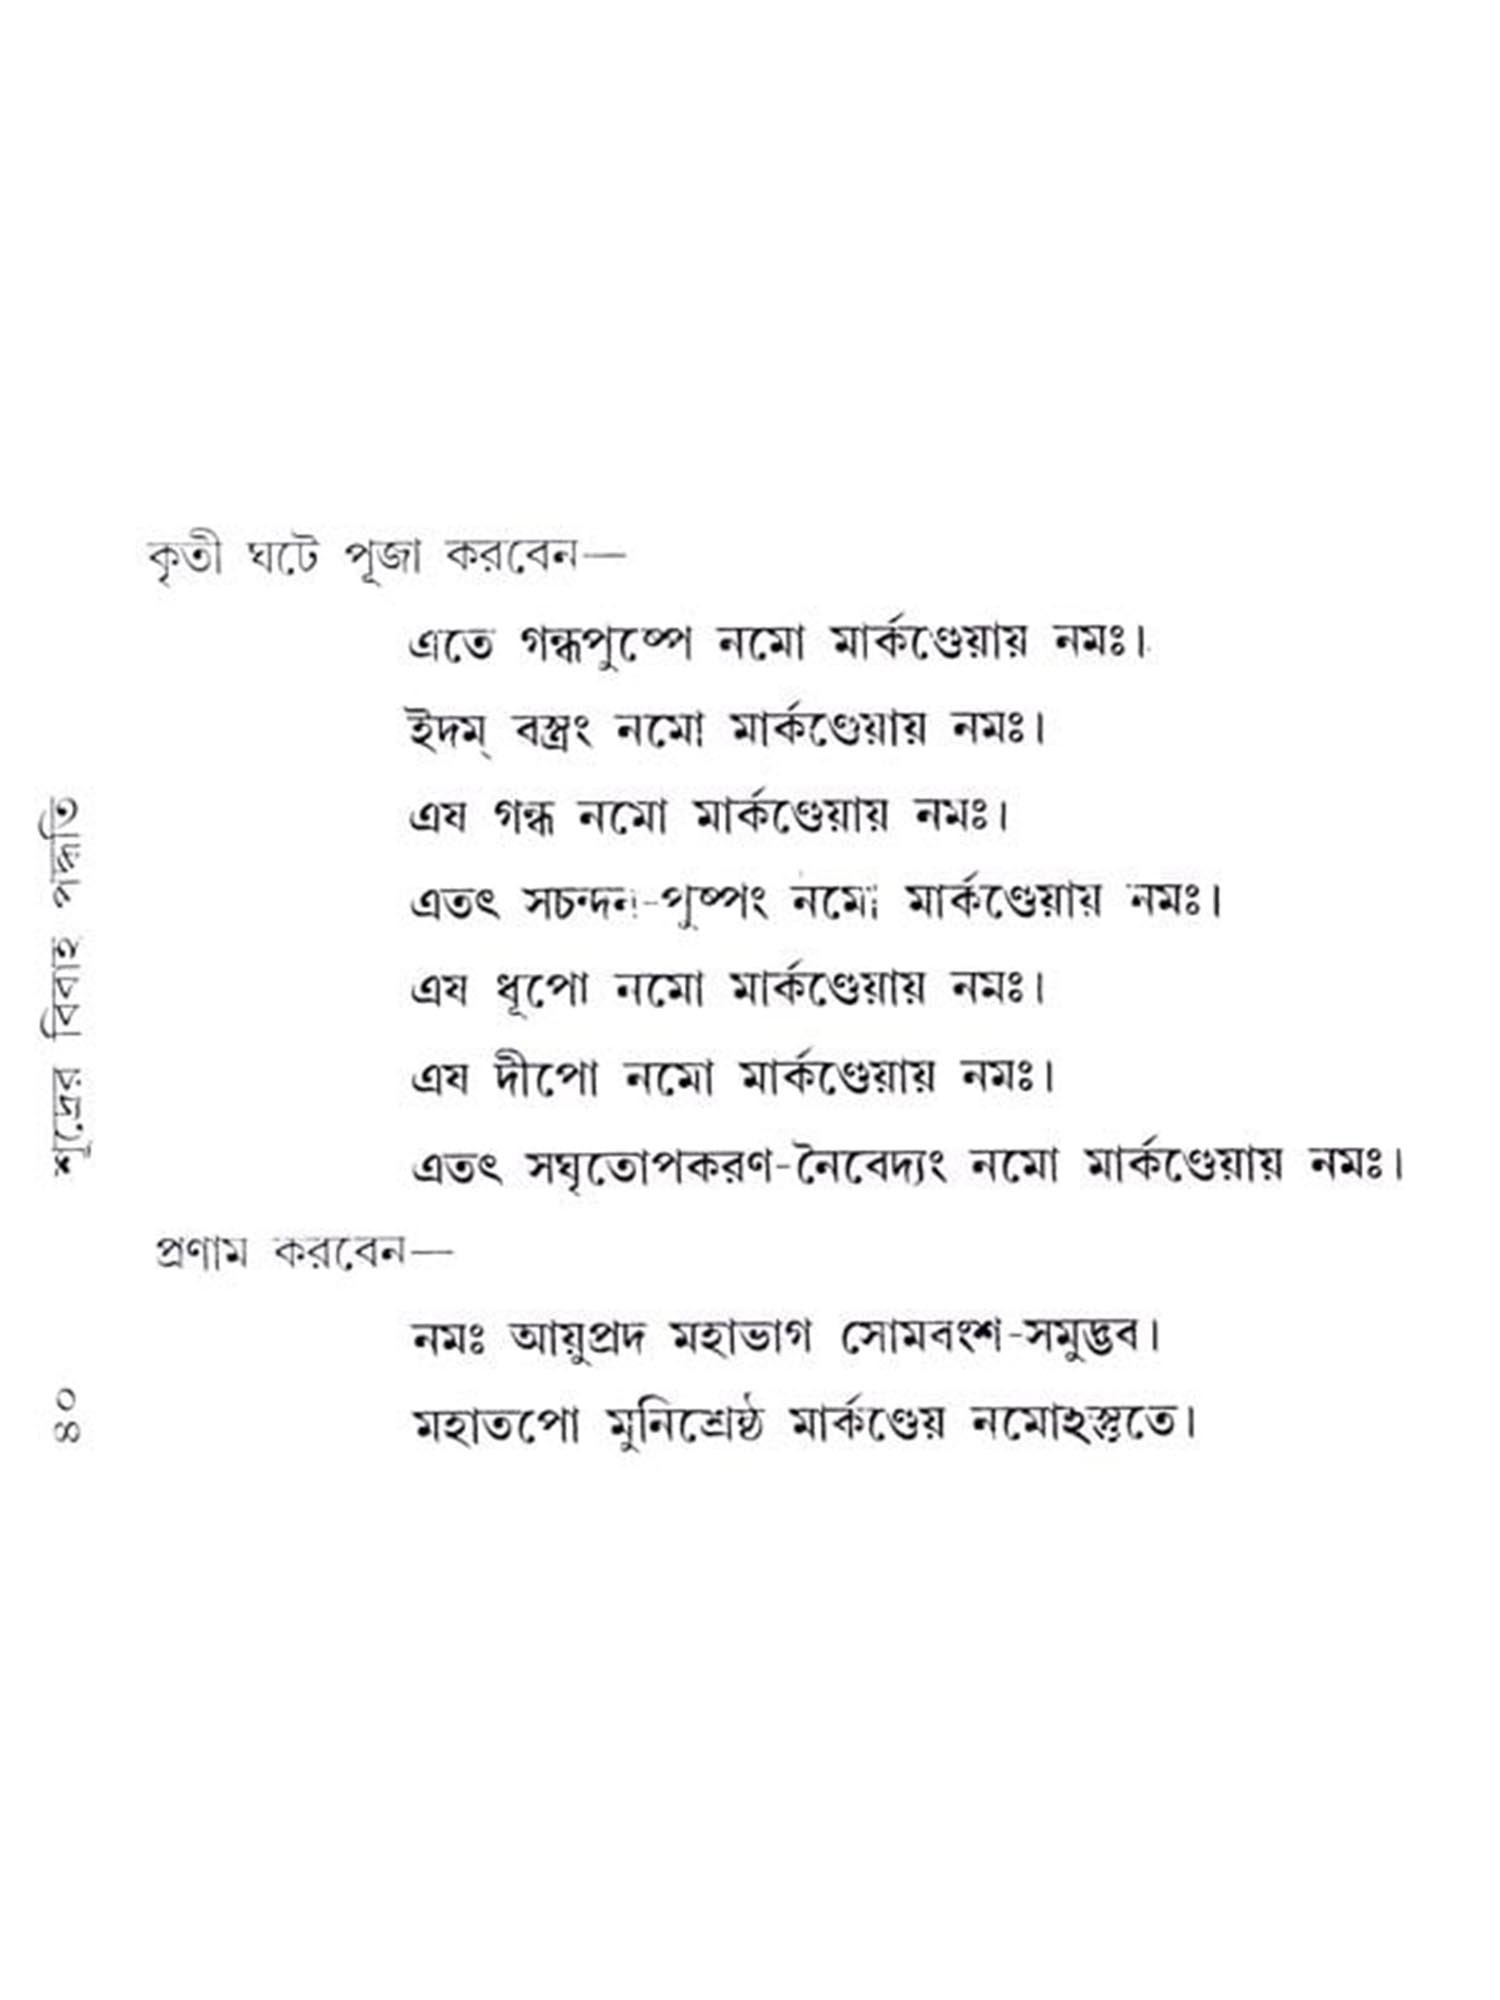 কৃতী ঘটে পূজা করবেন—
এতে গন্ধপুষ্পে নমো মার্কণ্ডেয়ায় নমঃ।
ইদম্ বস্ত্রং নমো মার্কণ্ডেয়ায় নমঃ।
এষ গন্ধ নমো মার্কণ্ডেয়ায় নমঃ।
এতৎ সচন্দন-পুষ্পং নমো মার্কণ্ডেয়ায় নমঃ।
এষ ধূপো নমো মার্কণ্ডেয়ায় নমঃ।
এষ দীপো নমো মার্কণ্ডেয়ায় নমঃ।
এতৎ সঘৃতোপকরণ-নৈবেদ্যং নমো মার্কণ্ডেয়ায় নমঃ।
প্রণাম করবেন—
নমঃ আয়ুপ্রদ মহাভাগ সোমবংশ-সমুদ্ভব।
মহাতপো মুনিশ্রেষ্ঠ মার্কণ্ডেয় নমোহস্তুতে।
৪০ শূদ্রের বিবাহ পদ্ধতি